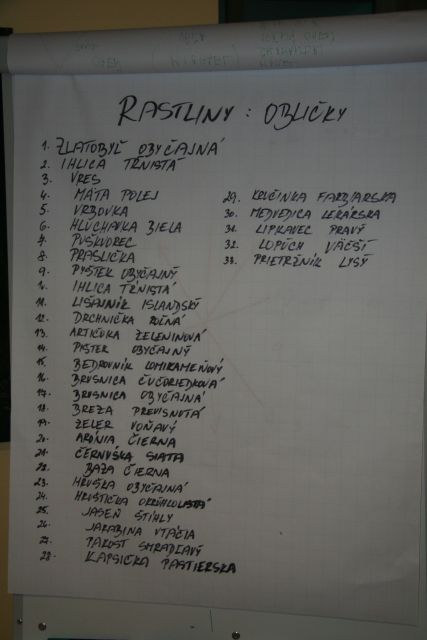 RASTLINY : OBLIČKY
1. ZLATOBYĽ OBYČAJNÁ
2. IHLICA TŔNISTÁ
3. VRES
4. MÄTA POLEJ
5. VRBOVKA
6. HLUCHAVKA BIELA
7. PUŠKVOREC
8. PRASLIČKA
9. PÝSTEK OBYČAJNÝ
IHLICA TŔNISTÁ
11. LIŠAJNÍK ISLANDSKÝ
12. DRCHNIČKA ROĽNÁ
13. ARTIČOKA ZELENINOVÁ
14. OBYČAJNÝ
15. BEDROVNÍK LOMIKAMEŇOVÝ
16. BRUSNICA ČUČORIEDKOVÁ
17. BRUSNICA OBYČAJNÁ
18. BREZA PREVISNUTÁ
19. ZELER VOŇAVÝ
20. ARÓNIA ČIERNA
21. ČERNUŠKA SIATA
22. BAZA ČIERNA
23. HRUŠKA OBYČAJNÁ
24. OKRÚHLOLISTÁ
25. JASEŇ ŠTÍHLY
26. JARABINA VTÁČIA
27. PAKOST SMRADĽAVÝ
28. KAPSIČKA PASTIERSKA
29. KRUČINKA FARBIARSKA
30. MEDVEDICA LEKÁRSKA
31. LIPKAVEC PRAVÝ
32. LOPÚCH VÄČŠÍ
33. PRIETRŽNÍK LYSÝ